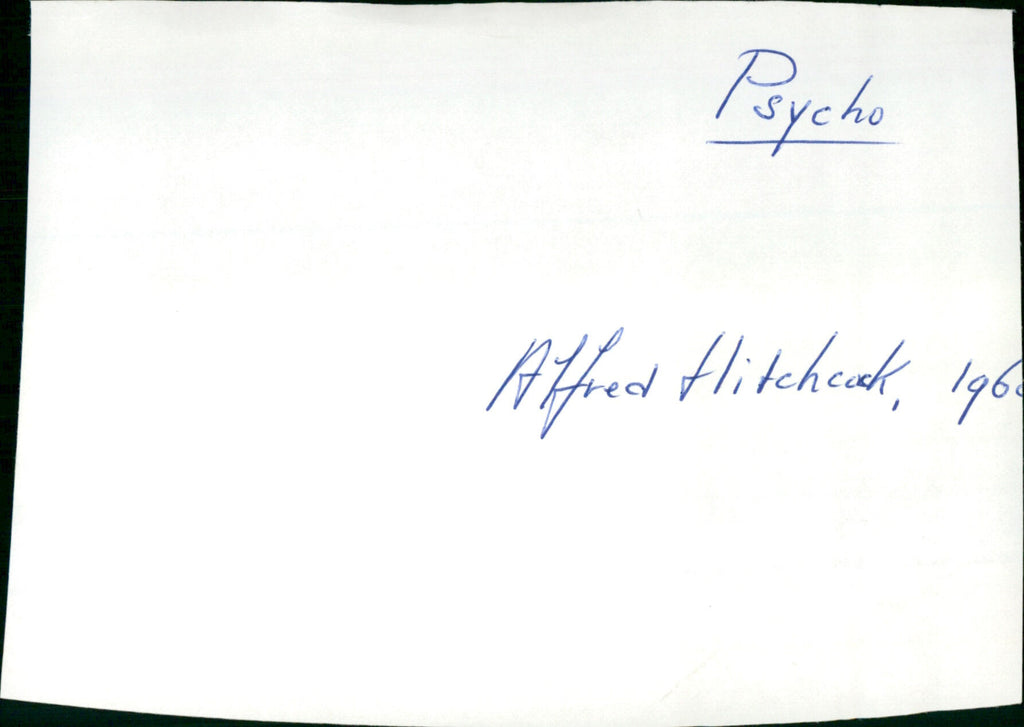 Psycho
Alfred Hitchcock, 1960